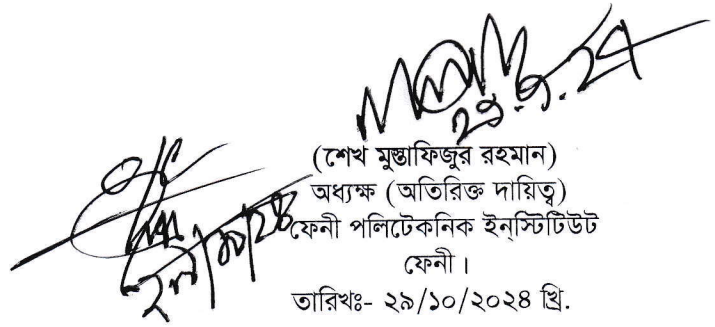 (শেখ মুস্তাফিজুর রহমান)
অধ্যক্ষ (অতিরিক্ত দায়িত্ব)
ফেনী পলিটেকনিক ইন্‌স্টিটিউট
ফেনী।
তারিখঃ- ২৯/১০/২০২৪ খ্রি.